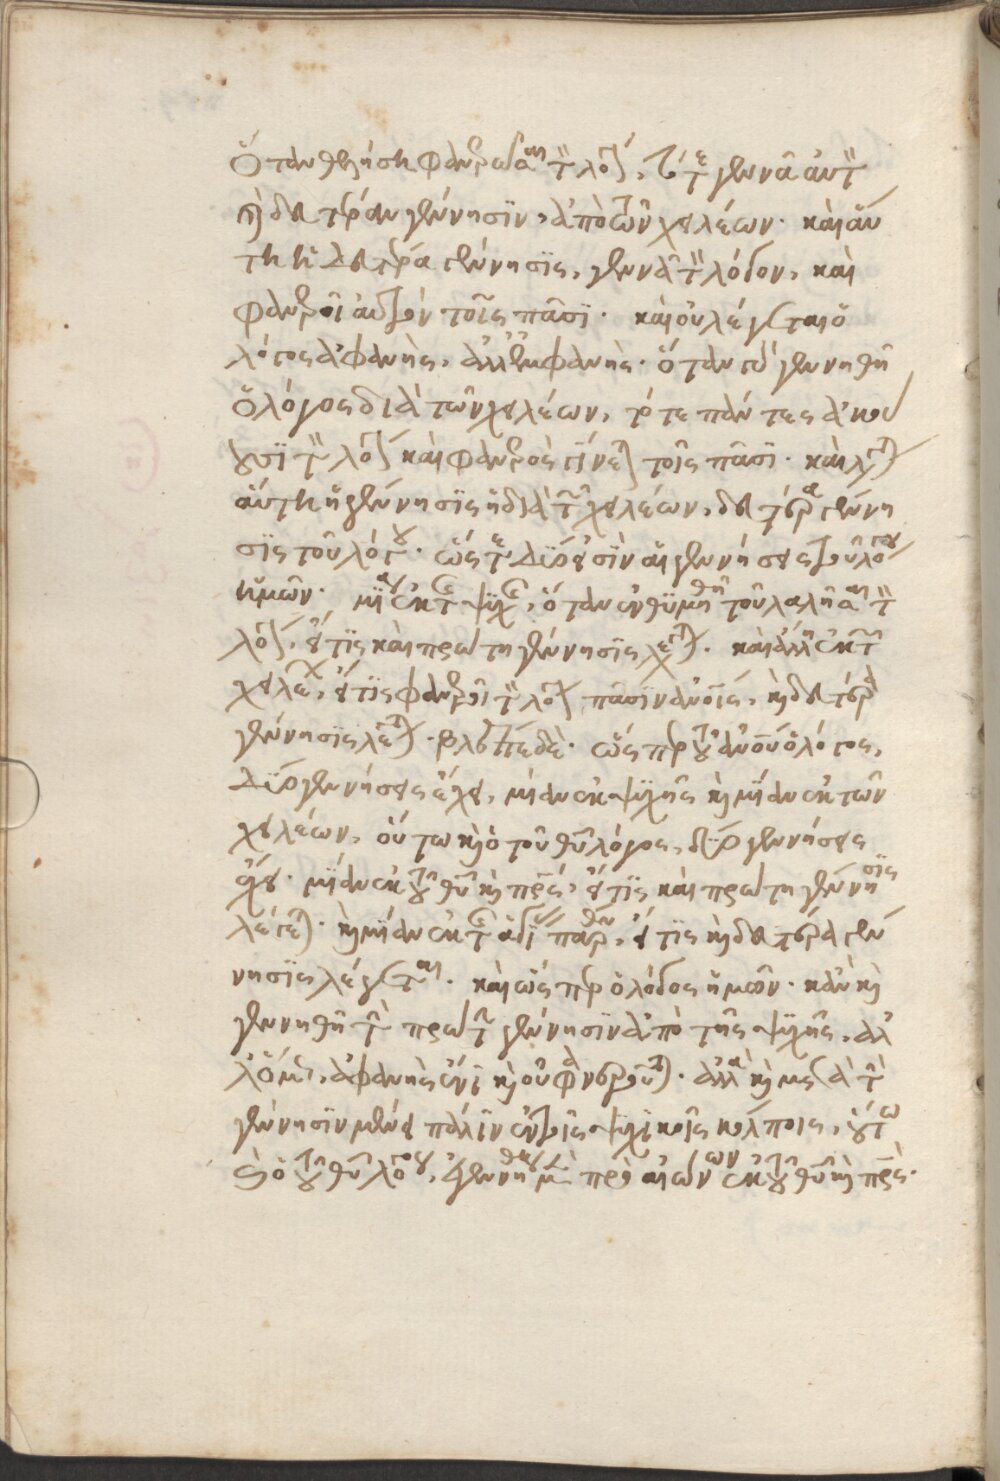 ὅταν θελήση φανερῶσαι τὸν λόγον, τότε γεννᾶ αὐτὸν
κ δευτέραν γέννησϊν, ἀπὸ τῶν χειλέων. καὶ αὕ
τη ἡ δευτέρα γέννησϊς, γεννᾶ τὸν λόγον, καὶ
φανεροῖ αὐτὸν τοῖς πᾶσϊ. καὶ οὐ λέγεται ὁ
λόγος ἀφανὴς, ἀλλ ἐμφανής. ὅταν οὖν γεννηθῆ
ὁ λόγος διὰ τῶν χειλέων, τότε πάντες ἀκού
ουσϊ τὸν λόγον καὶ φανερὸς γίνεται τοῖς πᾶσϊ. καὶ λέγεται
αὕτη ἡ γέννησϊς ἡ διὰ τῶν χειλέων, δευτέρα γέννη
σϊς τοῦ λόγου. ὥστε δύο εἰσὶν αἱ γεννήσεις τοῦ λόγου
ἡμῶν. μία ἐκ τῆς ψυχῆς, ὅταν ἐνθυμηθῆ τοῦ λαλῆσαι τὸν
λόγον, ἥτϊς καὶ πρώτη γέννησϊς λέγεται. καὶ ἄλλη ἐκ τῶν
χειλέων, ἥτϊς φανεροῖ τὸν λόγον πᾶσϊν ἀνοις, κ δευτέρα
γέννησϊς λέγεται. βλέπε δὲ. ὥσπερ τοῦ ἀνου ὁ λόγος,
δύο γεννήσεις ἔχει, μίαν ἐκ ψυχῆς κ μίαν ἐκ τῶν
χειλέων, οὕτω κ ὁ τοῦ θυ λόγος, δύο γεννήσεις
ἔχει. μίαν ἐκ τοῦ θυ κ πρς, ἥτϊς καὶ πρώτη γέννησϊς
λέγεται. κ μίαν ἐκ τῆς ἁγίας παρθένου, ἥτϊς κ δευτέρα γέν
νησϊς λέγεται. καὶ ὥσπερ ὁ λόγος ἡμῶν. κἂν κ
γεννηθῆ τὴν πρώτην γέννησϊν ἀπὸ τῆς ψυχῆς, ἀλ
λ ὅμως, ἀφανής ἐστι κ οὐ φανεροῦται. ἀλλὰ κ μετὰ τὴν
γέννησιν μένει πάλϊν ἐν τοῖς ψυχικοῖς κόλποις, οὕτω
κ ὁ τοῦ θυ λόγου, ἐγεννήθη μὲν πρὸ αἰώνων ἐκ τοῦ θυ κ πρς.